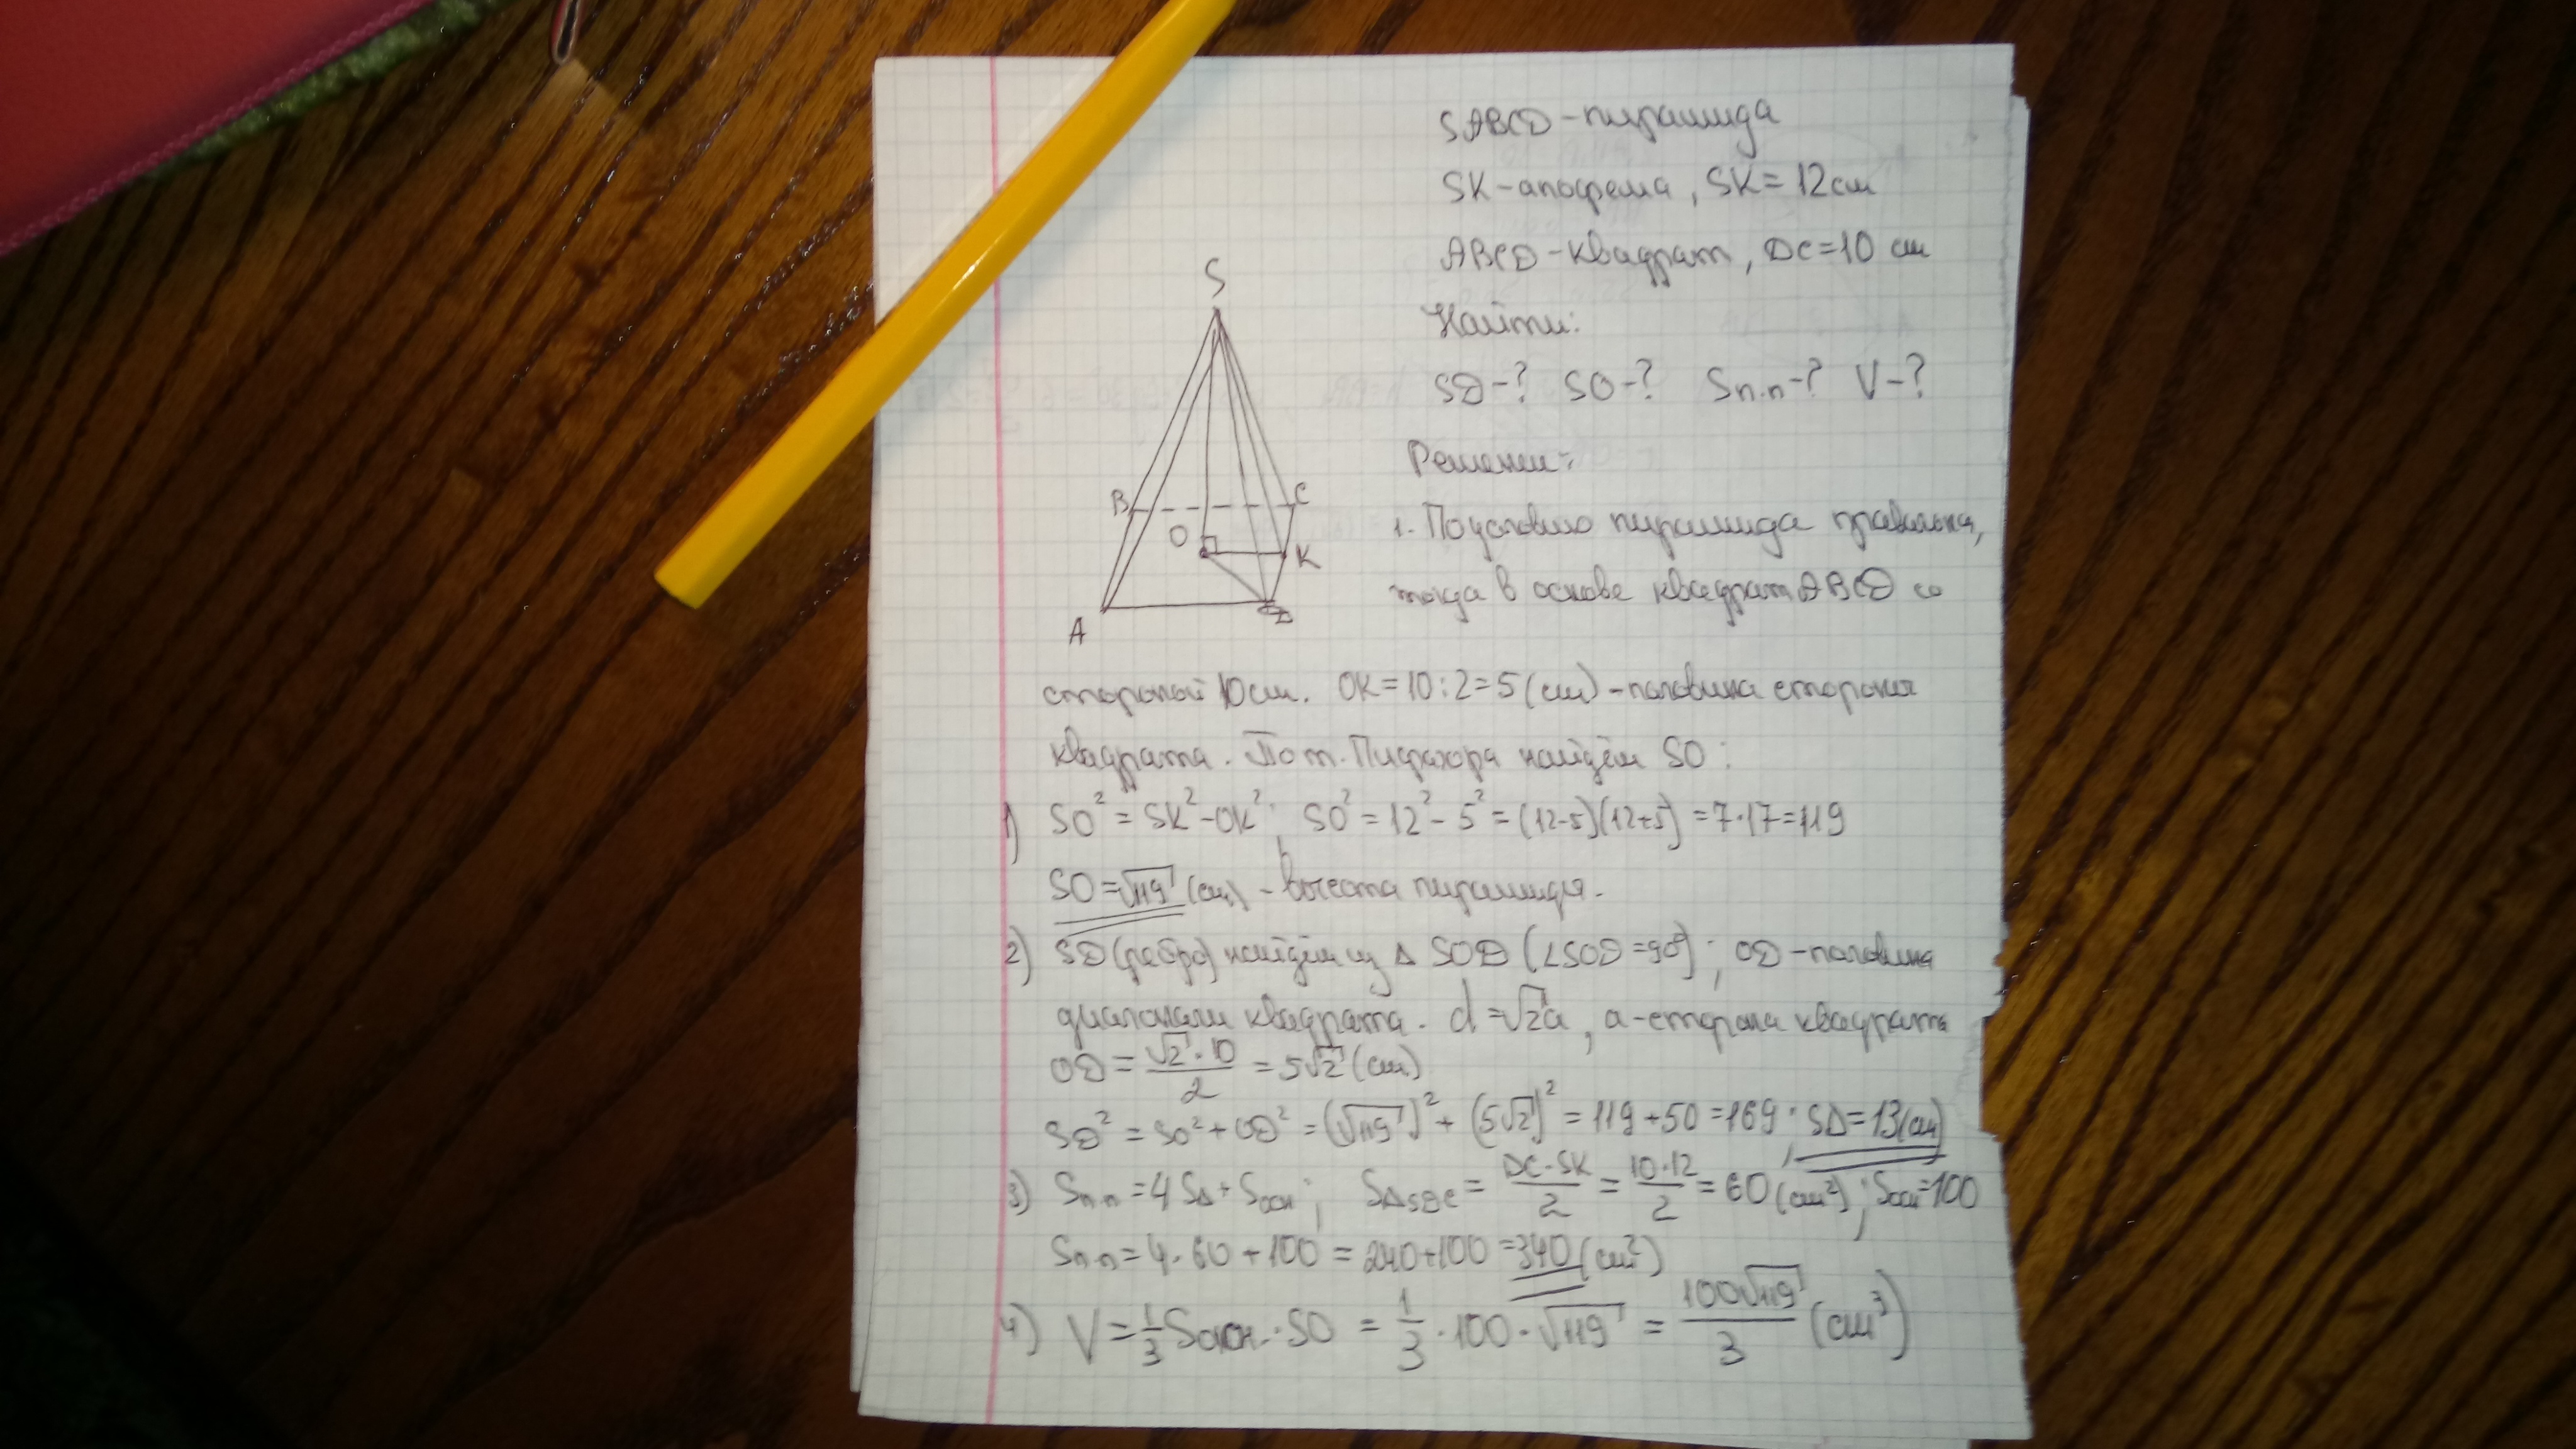 SABCD - пирамида
SK - апофема, SK = 12 см
ABCD - квадрат, DC = 10 см
Найти:
SD - ? SO - ? Sп.п - ? V - ?
S
B C
O K
A D
Решение:
1. По условию пирамида правильная,
тогда в основе квадрат ABCD со
стороной 10 см. OK = 10 : 2 = 5 (см) - половина стороны
квадрата. По т. Пифагора найдём SO :
1) SO² = SK² - OK²; SO² = 12² - 5² = (12-5)(12+5) = 7·17 = 119
SO = √119 (см) - высота пирамиды.
2) SD (ребро) найдём из Δ SOD (∠SOD = 90°); OD - половина
диагонали квадрата. d = √2a, a - сторона квадрата
OD = √2·10/2 = 5√2 (см)
SD² = SO² + OD² = (√119)² + (5√2)² = 119 + 50 = 169; SD = 13 (см)
3) Sп.п = 4 SΔ + Sосн; SΔSDC = DC·SK/2 = 10·12/2 = 60 (см²); Sосн = 100
Sп.п = 4·60 + 100 = 240 + 100 = 340 (см²)
4) V = 1/3 Sосн.·SO = 1/3 · 100 · √119 = 100√119/3 (см³)